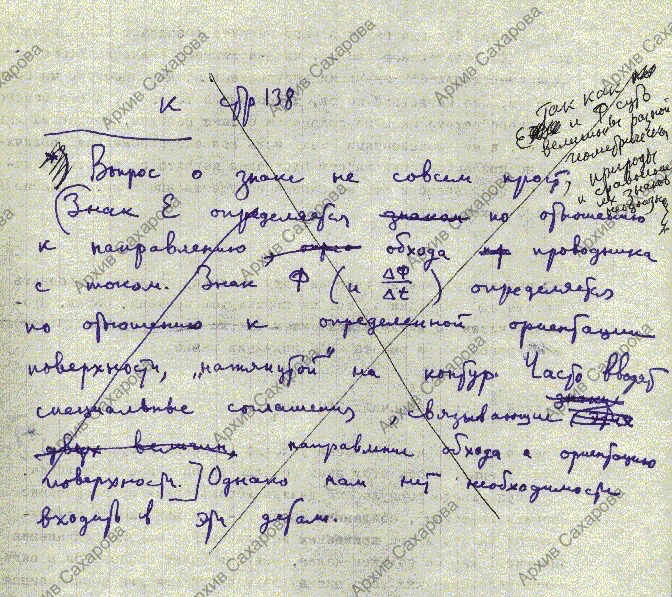 к стр 138
Так как
ℰ и Ф суть
величины разной
геометрической
природы
и сравнение
их знаков
*) Вопрос о знаке не совсем прост,
(Знак ℰ определяется знаком по отношению
к направлению, обхода проводника
с током. Знак Ф (и ΔФ/Δt) определяется
по отношению к определенной ориентации
поверхности, „натянутой" на контур. Часто вводят
специальные соглашения, связывающие знаки
двух величин, направление обхода и ориентацию
поверхности.] Однако нам нет необходимости
входить в эти детали.
Архив Сахарова